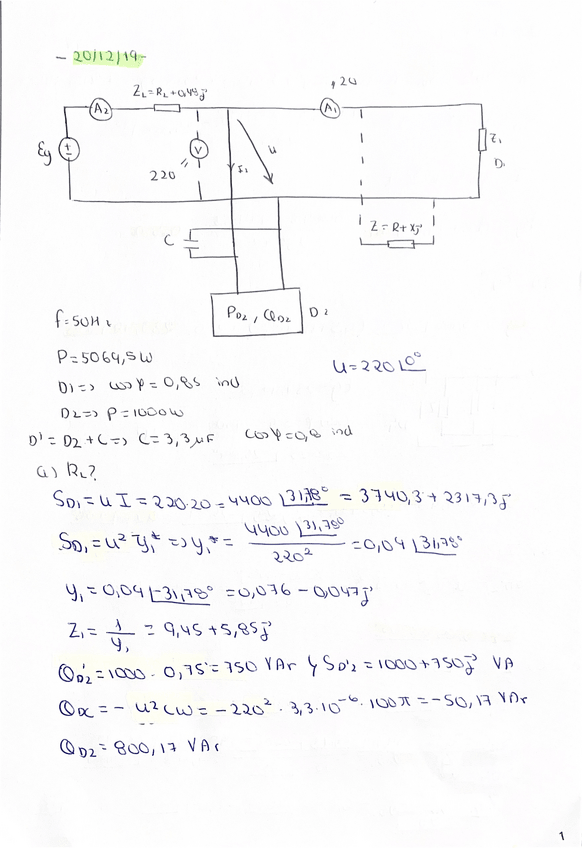 - 20/12/19 -
, 20
Z_L = R_L + 0,49j
A2
A1
Eg
V
220
I2
U
Z1
D1
Z = R + Xj
C
P_D2, Q_D2
D2
f = 50Hz
P = 5064,5W
U = 220 ∠0°
D1 => cos φ = 0,85 ind
D2 => P = 1000W
D' = D2 + C => C = 3,3 μF cos φ = 0,8 ind
a) R_L?
S_D1 = U I = 220 · 20 = 4400 ∠31,78° = 3740,3 + 2317,3j
S_D1 = U² Y1* => Y1* = 4400 ∠31,78° / 220² = 0,09 ∠31,78°
Y1 = 0,09 ∠-31,78° = 0,076 - 0,047j
Z1 = 1 / Y1 = 9,45 + 5,85j
Q_D2' = 1000 · 0,75 = 750 VAr y S_D'2 = 1000 + 750j VA
Q_DC = - U² C W = - 220² · 3,3·10⁻⁶ · 100π = -50,17 VAr
Q_D2 = 800,17 VAr
1